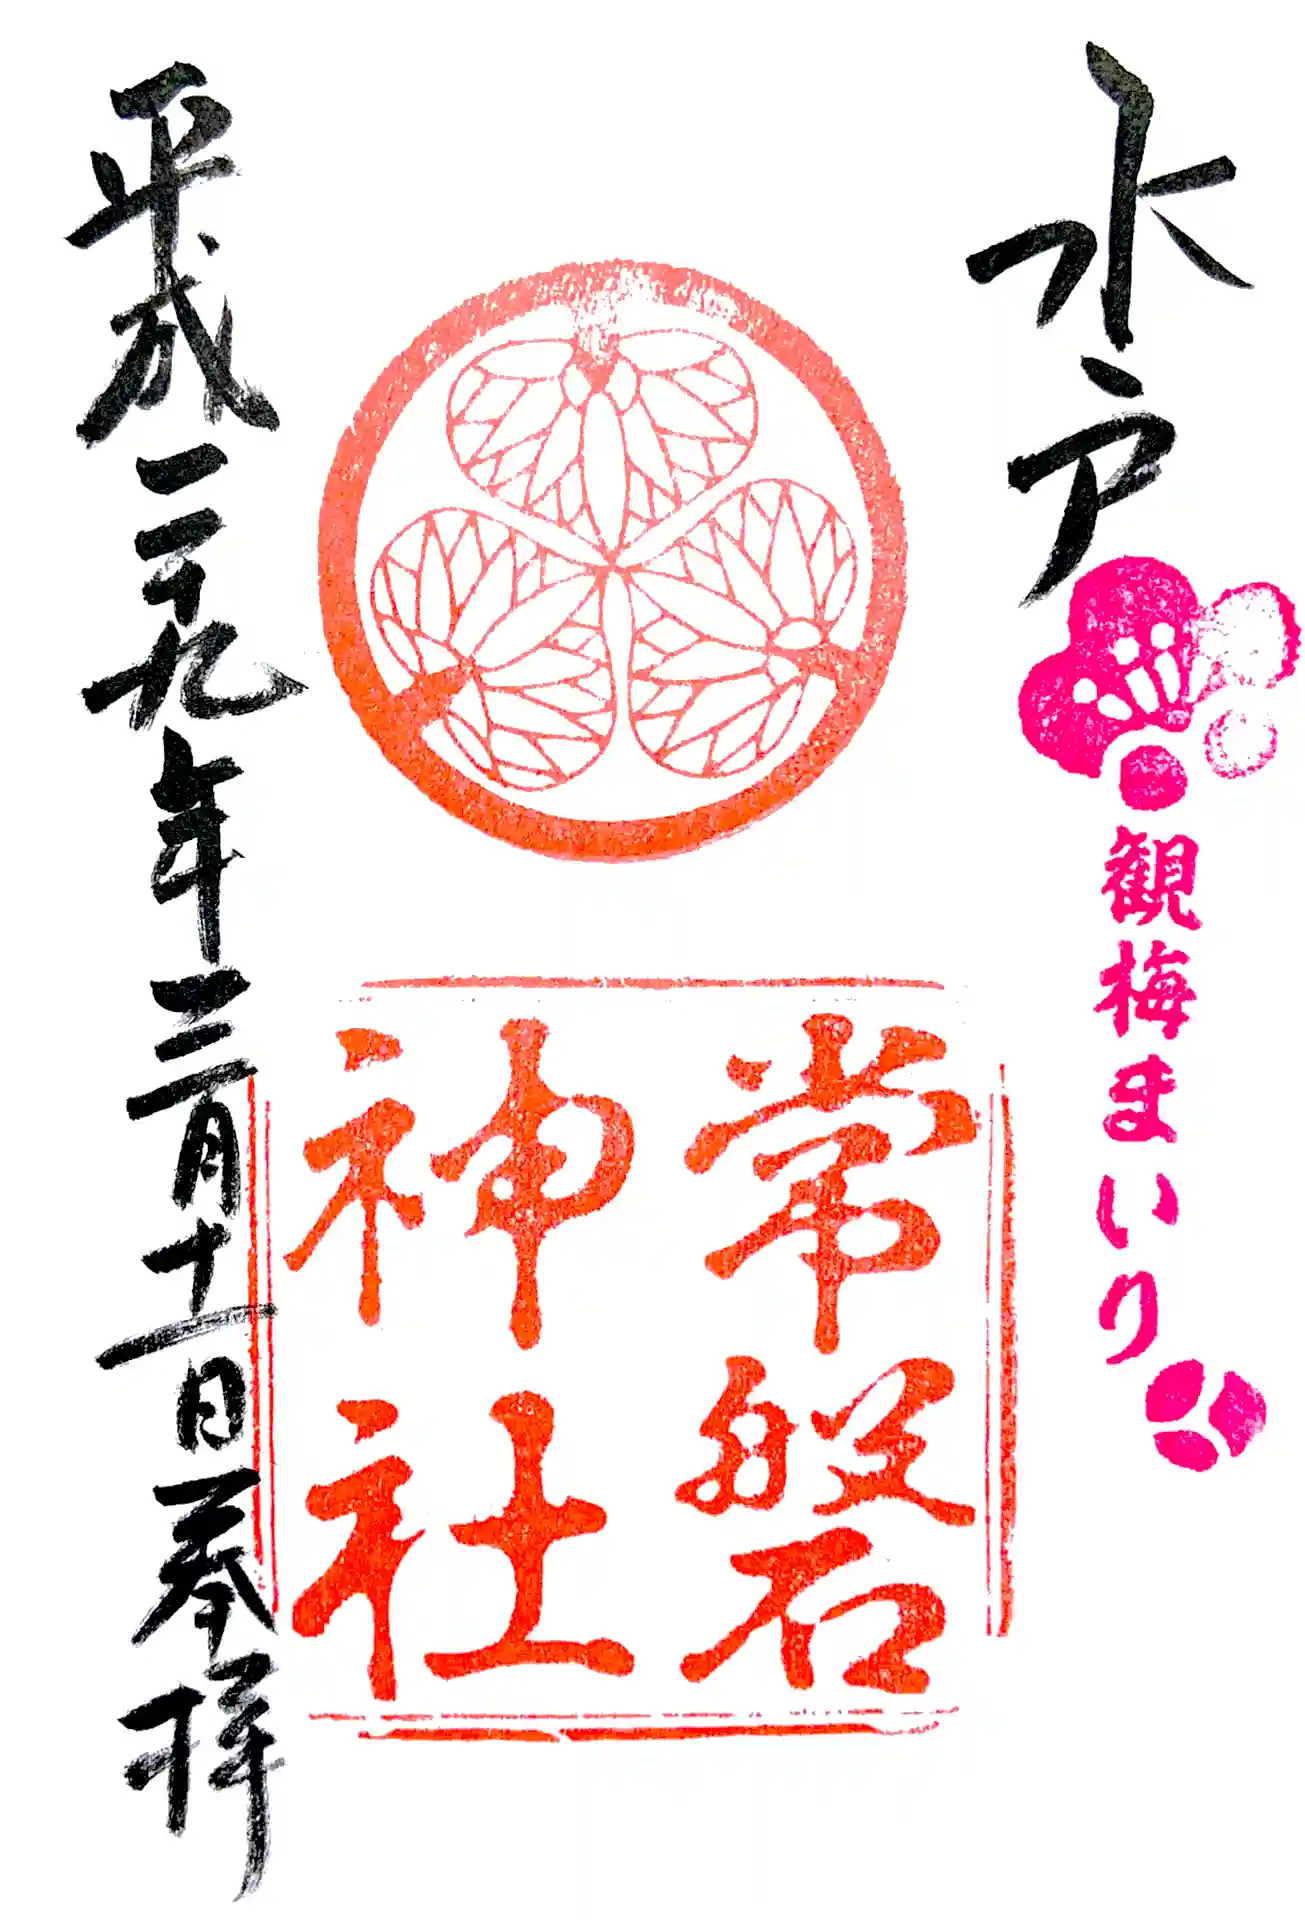 水戸
観梅まいり
常磐
神社
平成二十九年三月十一日奉拝